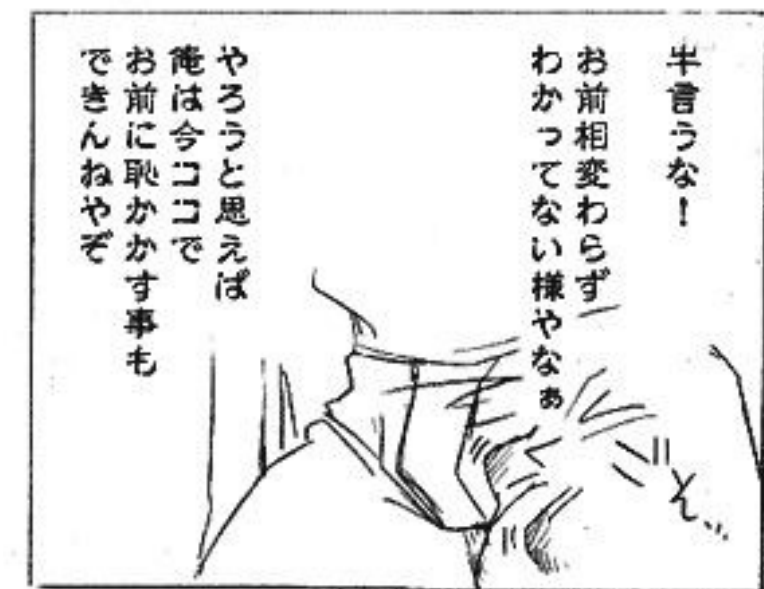 半言うな！
お前相変わらず
わかってない様やなぁ
やろうと思えば
俺は今ココで
お前に恥かかす事も
できんねやぞ
と…